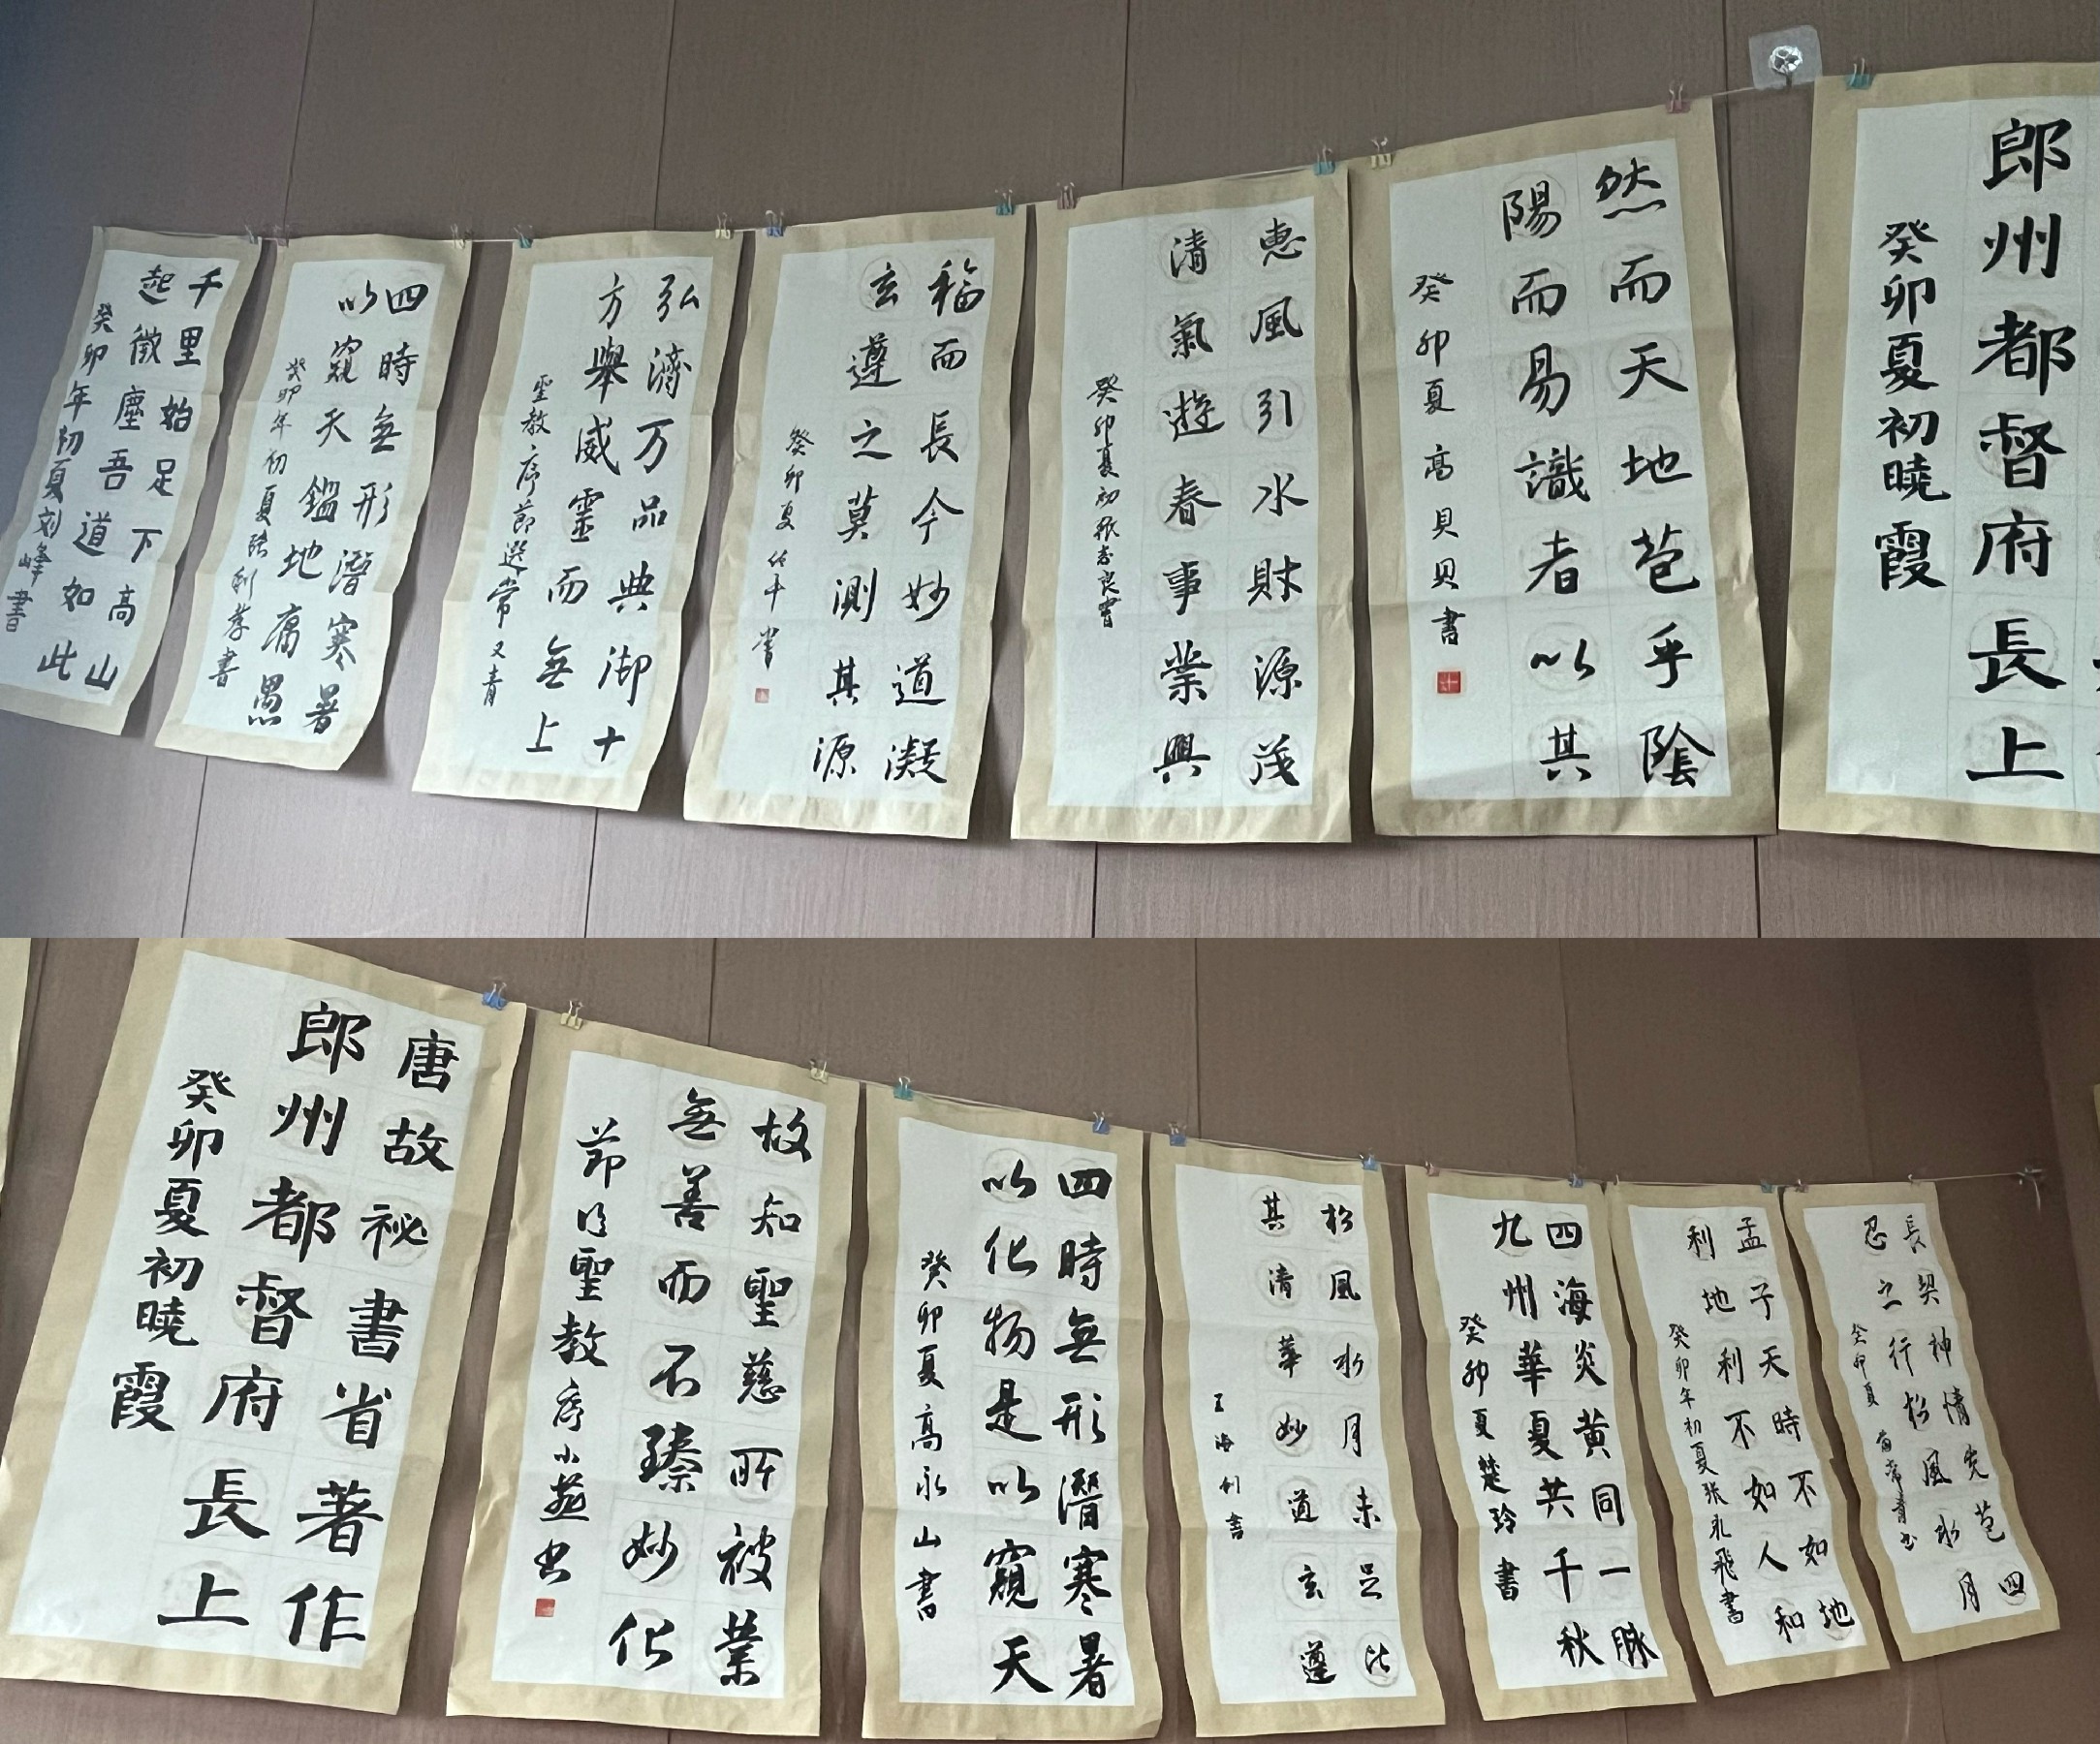 千里始足下高山
起微塵吾道如此
癸卯年初夏刘峰書
四時無形潛寒暑
以窺天鑑地庸愚
癸卯年初夏陸利萍書
弘濟万品典御十
方舉威靈而無上
聖教序節選常又青
福而長今妙道凝
玄遵之莫測其源
癸卯夏
惠風引水財源茂
清氣遊春事業興
癸卯夏初張
然而天地苞乎陰
陽而易識者以其
癸卯夏高貝貝書
郎州都督府長上
癸卯夏初曉霞
唐故祕書省著作
郎州都督府長上
癸卯夏初曉霞
故知聖慈所被業
無善而不臻妙化
節臨聖教序小燕书
四時無形潛寒暑
以化物是以窺天
癸卯夏高永山書
松風水月未足比
其清華妙道玄遵
王海利書
四海炎黃同一脉
九州華夏共千秋
癸卯夏楚玲書
孟子天時不如地
利地利不如人和
癸卯年初夏张礼飛書
長契神情先苞四
忍之行松風水月